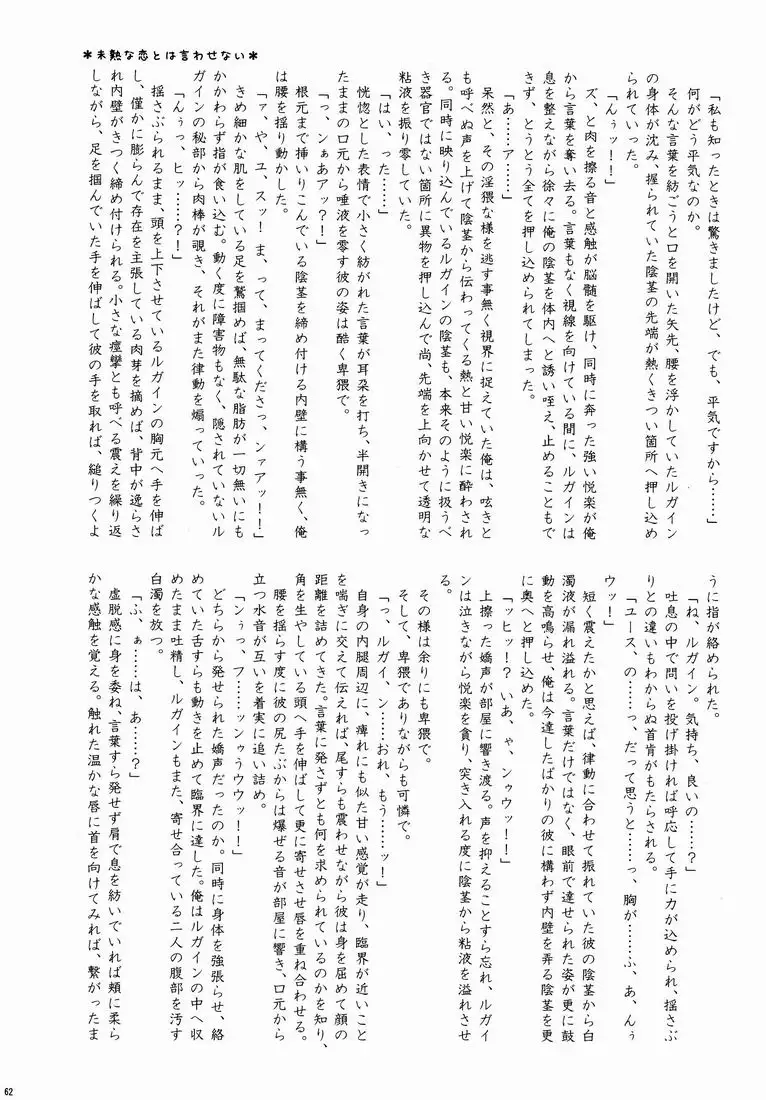 ＊未熟な恋とは言わせない＊
「私も知ったときは驚きましたけど、でも、平気ですから……」
何がどう平気なのか。
そんな言葉を紡ごうと口を開いた矢先、腰を浮かしていたルガイン
の身体が沈み、握られていた陰茎の先端が熱くきつい箇所へ押し込め
られていった。
「んぅッ！！」
ズ、と肉を擦る音と感触が脳髄を駆け、同時に奔った強い悦楽が俺
から言葉を奪い去る。言葉もなく視線を向けている間に、ルガインは
息を整えながら徐々に俺の陰茎を体内へと誘い咥え、止めることもで
きず、とうとう全てを押し込められてしまった。
「あ……ア……」
呆然と、その淫猥な様を逃す事無く視界に捉えていた俺は、呟きと
も呼べぬ声を上げて陰茎から伝わってくる熱と甘い悦楽に酔わされ
る。同時に映り込んでいるルガインの陰茎も、本来そのように扱うべ
き器官ではない箇所に異物を押し込んで尚、先端を上向かせて透明な
粘液を振り零していた。
「はい、った……」
恍惚とした表情で小さく紡がれた言葉が耳朶を打ち、半開きになっ
たままの口元から唾液を零す彼の姿は酷く卑猥で。
「っ、ンぁあアッ？！」
根元まで挿いりこんでいる陰茎を締め付ける内壁に構う事無く、俺
は腰を揺り動かした。
「ァ、や、ユ、スッ！ま、って、まってくださっ、ンァアッ！！」
きめ細かな肌をしている足を鷲掴めば、無駄な脂肪が一切無いにも
かかわらず指が食い込む。動く度に障害物もなく、隠されていないル
ガインの秘部から肉棒が覗き、それがまた律動を煽っていった。
「んぅっ、ヒッ……？！」
揺さぶられるまま、頭を上下させているルガインの胸元へ手を伸ば
し、僅かに膨らんで存在を主張している肉芽を摘めば、背中が逸らさ
れ内壁がきつく締め付けられる。小さな痙攣とも呼べる震えを繰り返
しながら、足を掴んでいた手を伸ばして彼の手を取れば、縋りつくよ
うに指が絡められた。
「ね、ルガイン。気持ち、良いの……？」
吐息の中で問いを投げ掛ければ呼応して手に力が込められ、揺さぶ
りとの違いもわからぬ首肯がもたらされる。
「ユース、の……っ、だって思うと……っ、胸が……ふ、あ、んぅ
ウッ！」
短く震えたかと思えば、律動に合わせて振れていた彼の陰茎から白
濁液が漏れ溢れる。言葉だけではなく、眼前で達せられた姿が更に鼓
動を高鳴らせ、俺は今達したばかりの彼に構わず内壁を弄る陰茎を更
に奥へと押し込めた。
「ッヒッ！？いあ、ゃ、ンゥウッ！」
上擦った嬌声が部屋に響き渡る。声を抑えることすら忘れ、ルガイ
ンは泣きながら悦楽を貪り、突き入れる度に陰茎から粘液を溢れさせ
る。
その様は余りにも卑猥で。
そして、卑猥でありながらも可憐で。
「っ、ルガイ、ン……おれ、もう……ッ！」
自身の内腿周辺に、痺れにも似た甘い感覚が走り、臨界が近いこと
を喘ぎに交えて伝えれば、尾すらも震わせながら彼は身を屈めて顔の
距離を詰めてきた。言葉に発さずとも何を求められているのかを知り、
角を生やしている頭へ手を伸ばして更に寄せさせ唇を重ね合わせる。
腰を揺らす度に彼の尻たぶからは爆ぜる音が部屋に響き、口元から
立つ水音が互いを着実に追い詰め。
「ンぅっ、フ……ッンゥうウウッ！！」
どちらから発せられた嬌声だったのか。同時に身体を強張らせ、絡
めていた舌すらも動きを止めて臨界に達した。俺はルガインの中へ収
めたまま吐精し、ルガインもまた、寄せ合っている二人の腹部を汚す
白濁を放つ。
「ふ、ぁ……は、あ……？」
虚脱感に身を委ね、言葉すら発せず肩で息を紡いでいれば頬に柔ら
かな感触を覚える。触れた温かな唇に首を向けてみれば、繋がったま
62